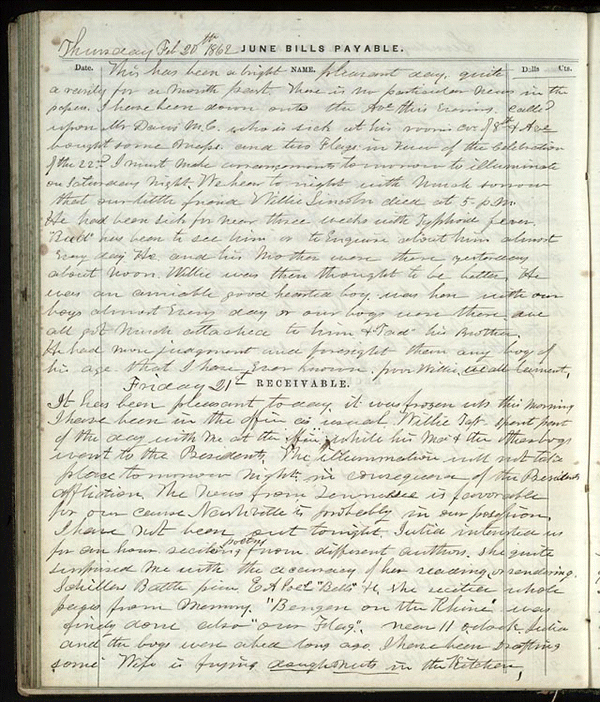 Thursday Feb 20th 1862 JUNE BILLS PAYABLE.
Date. NAME. Dolls Cts.
This has been a bright pleasant day, quite
a rarity for a month past. There is no particular news in the
papers. I have been down onto the Ave this Evening. called
upon Mr Davis M.C. who is sick at his room cor of 8th & Ave
bought some Maps. and two Flags in view of the Celebration
of the 22nd I must make arrangements tomorrow to illuminate
on Saturday Night. We hear to night with much sorrow
that our little friend Willie Lincoln died at 5. P.M.
He had been sick for near three weeks with Typhoid fever.
"Bud" has been to see him or to Enquire about him almost
Every day. He and his Mother were there yesterday
about noon. Willie was then thought to be better. He
was an amiable good hearted boy. was here with our
boys almost Every day or our boys were there. we
all got much attached to him & "Tad" his Brother.
He had more judgment and foresight than any boy of
his age that I have Ever known. poor Willie, we all lament.
Friday 21st RECEIVABLE.
It has been pleasant to day. it was frozen up this morning
I have been in the office as usual. Willie Taft spent part
of the day with me at the office, while his Ma & the other boys
went to the Presidents. The illumination will not take
place tomorrow night, in consequence of the Presidents
affliction. The news from Tennessee is favorable
for our cause Nashville is probably in our possession.
I have not been out tonight. Julia interested us
for an hour reciting poetry from different authors. She quite
surprised me with the accuracy of her reading, or rendering.
Schillers Battle piece, E A Poes "Bells" &c, she recites whole
pages from memory. "Bingen on the Rhine" was
finely done also "our Flag". near 11 oclock Julia
and the boys were abed long ago. I have been Drafting
some Wife is frying doughnuts in the Kitchen,